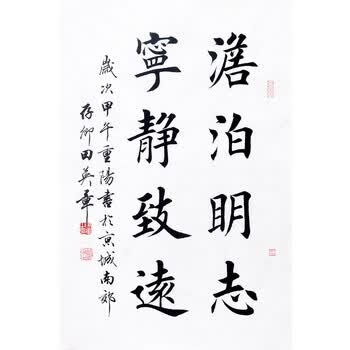 澹泊明志
寧靜致遠
歲次甲午重陽書於京城南郊
存卿田英章